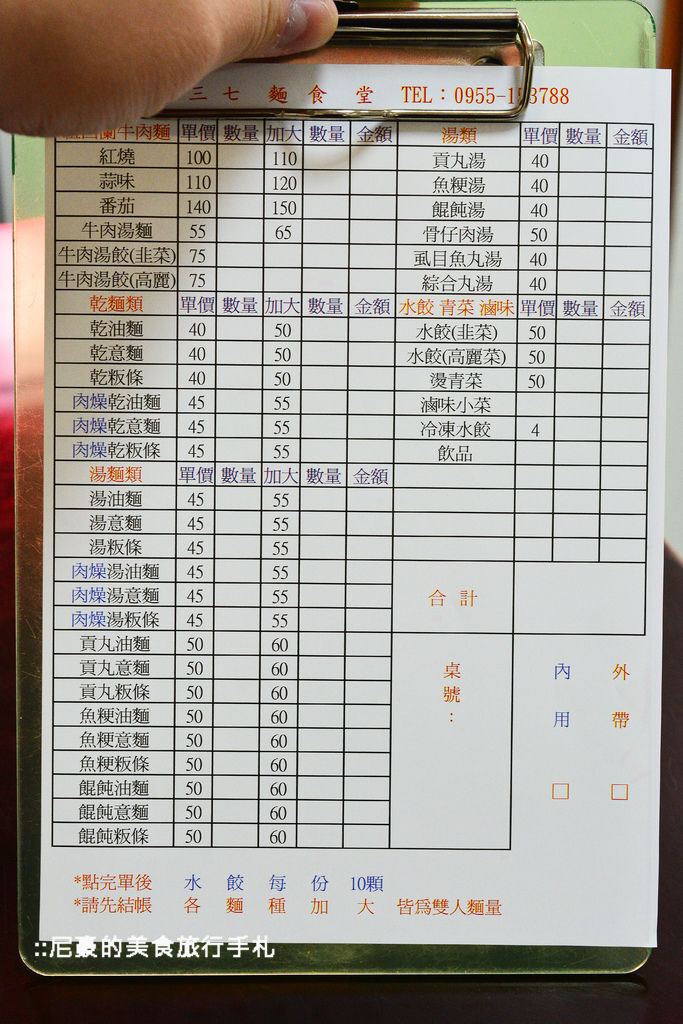 三七麵食堂 TEL：0955-1 3788
牛肉麵 單價 數量 加大 數量 金額 湯類 單價 數量 金額
紅燒 100 110 貢丸湯 40
蒜味 110 120 魚粳湯 40
番茄 140 150 餛飩湯 40
牛肉湯麵 55 65 骨仔肉湯 50
牛肉湯餃(韭菜) 75 虱目魚丸湯 40
牛肉湯餃(高麗) 75 綜合丸湯 40
乾麵類 單價 數量 加大 數量 金額 水餃 青菜 滷味 單價 數量 金額
乾油麵 40 50 水餃(韭菜) 50
乾意麵 40 50 水餃(高麗菜) 50
乾粄條 40 50 燙青菜 50
肉燥乾油麵 45 55 滷味小菜
肉燥乾意麵 45 55 冷凍水餃 4
肉燥乾粄條 45 55 飲品
湯麵類 單價 數量 加大 數量 金額
湯油麵 45 55
湯意麵 45 55
湯粄條 45 55
肉燥湯油麵 45 55
肉燥湯意麵 45 55
肉燥湯粄條 45 55
合計
貢丸油麵 50 60
貢丸意麵 50 60
貢丸粄條 50 60
魚粳油麵 50 60
魚粳意麵 50 60
魚粳粄條 50 60
餛飩油麵 50 60
餛飩意麵 50 60
餛飩粄條 50 60
桌號：
內用 □
外帶 □
*點完單後 水餃每份10顆
*請先結帳 各麵種加大 皆為雙人麵量
::尼豪的美食旅行手札